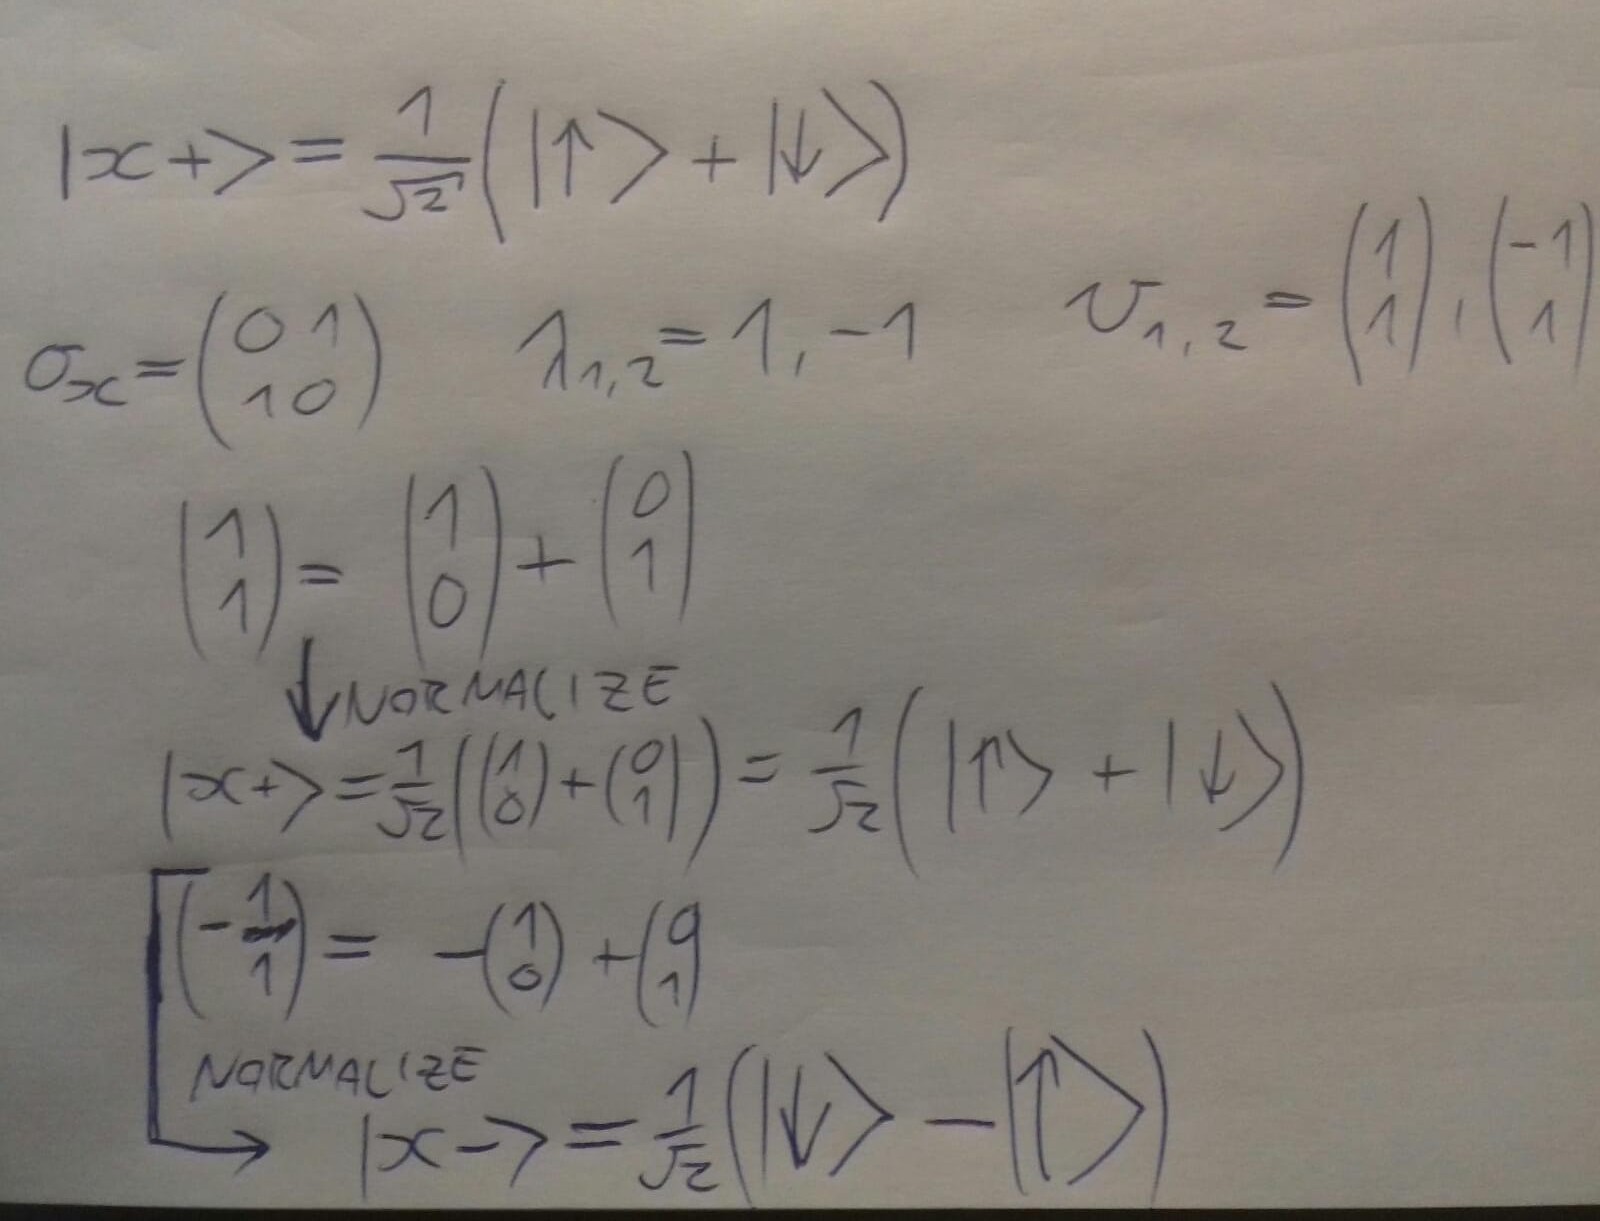 |x+> = 1/√2 (|↑> + |↓>)
σx = (0 1 / 1 0) λ1,2 = 1, -1 v1,2 = (1 / 1), (-1 / 1)
(1 / 1) = (1 / 0) + (0 / 1)
↓ NORMALIZE
|x+> = 1/√2 ((1 / 0) + (0 / 1)) = 1/√2 (|↑> + |↓>)
(-1 / 1) = -(1 / 0) + (0 / 1)
NORMALIZE
→ |x-> = 1/√2 (|↓> - |↑>)